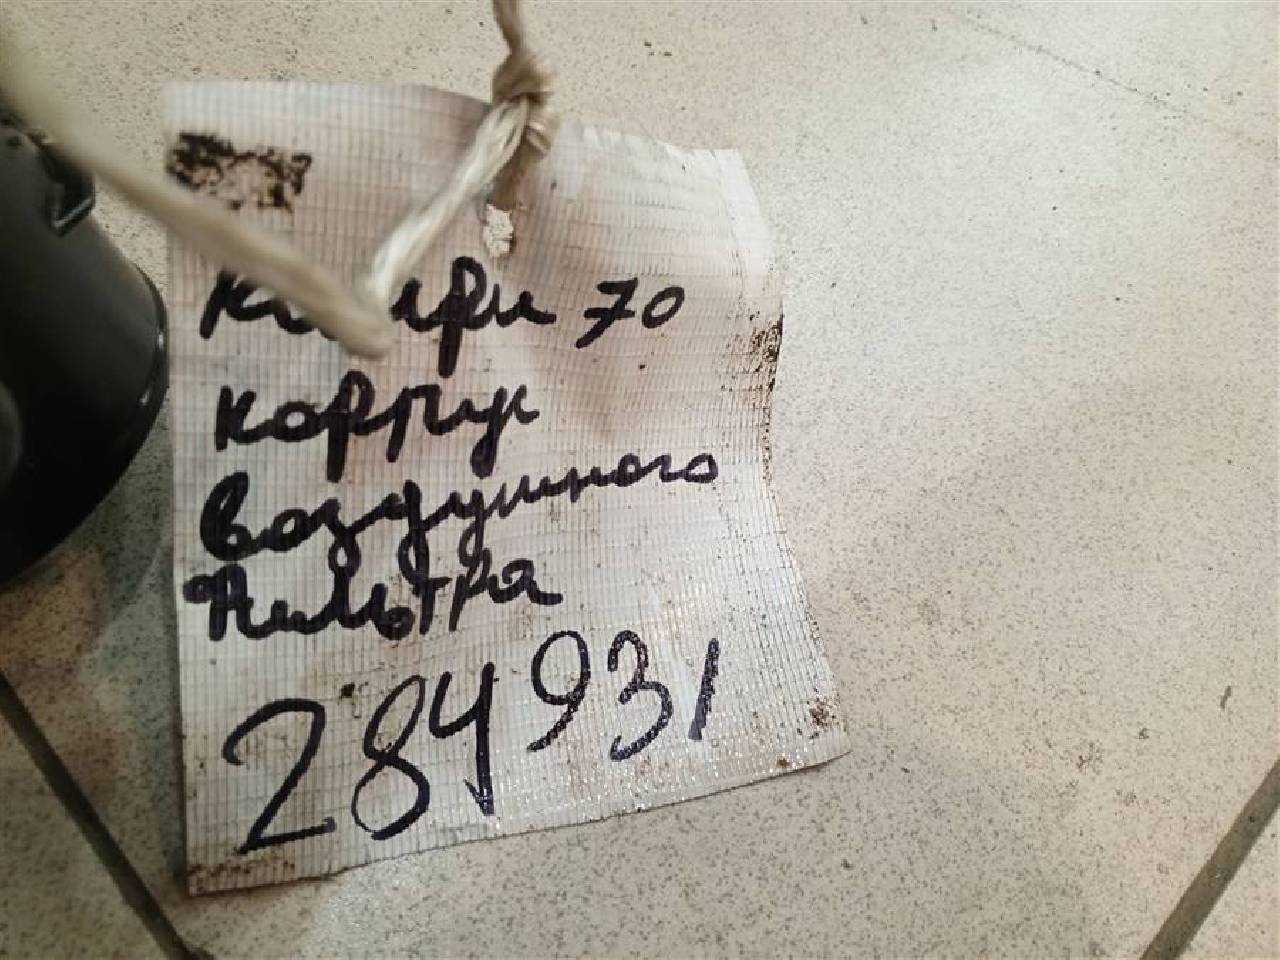 Камри 70
корпус
воздушного
Фильтра
284931